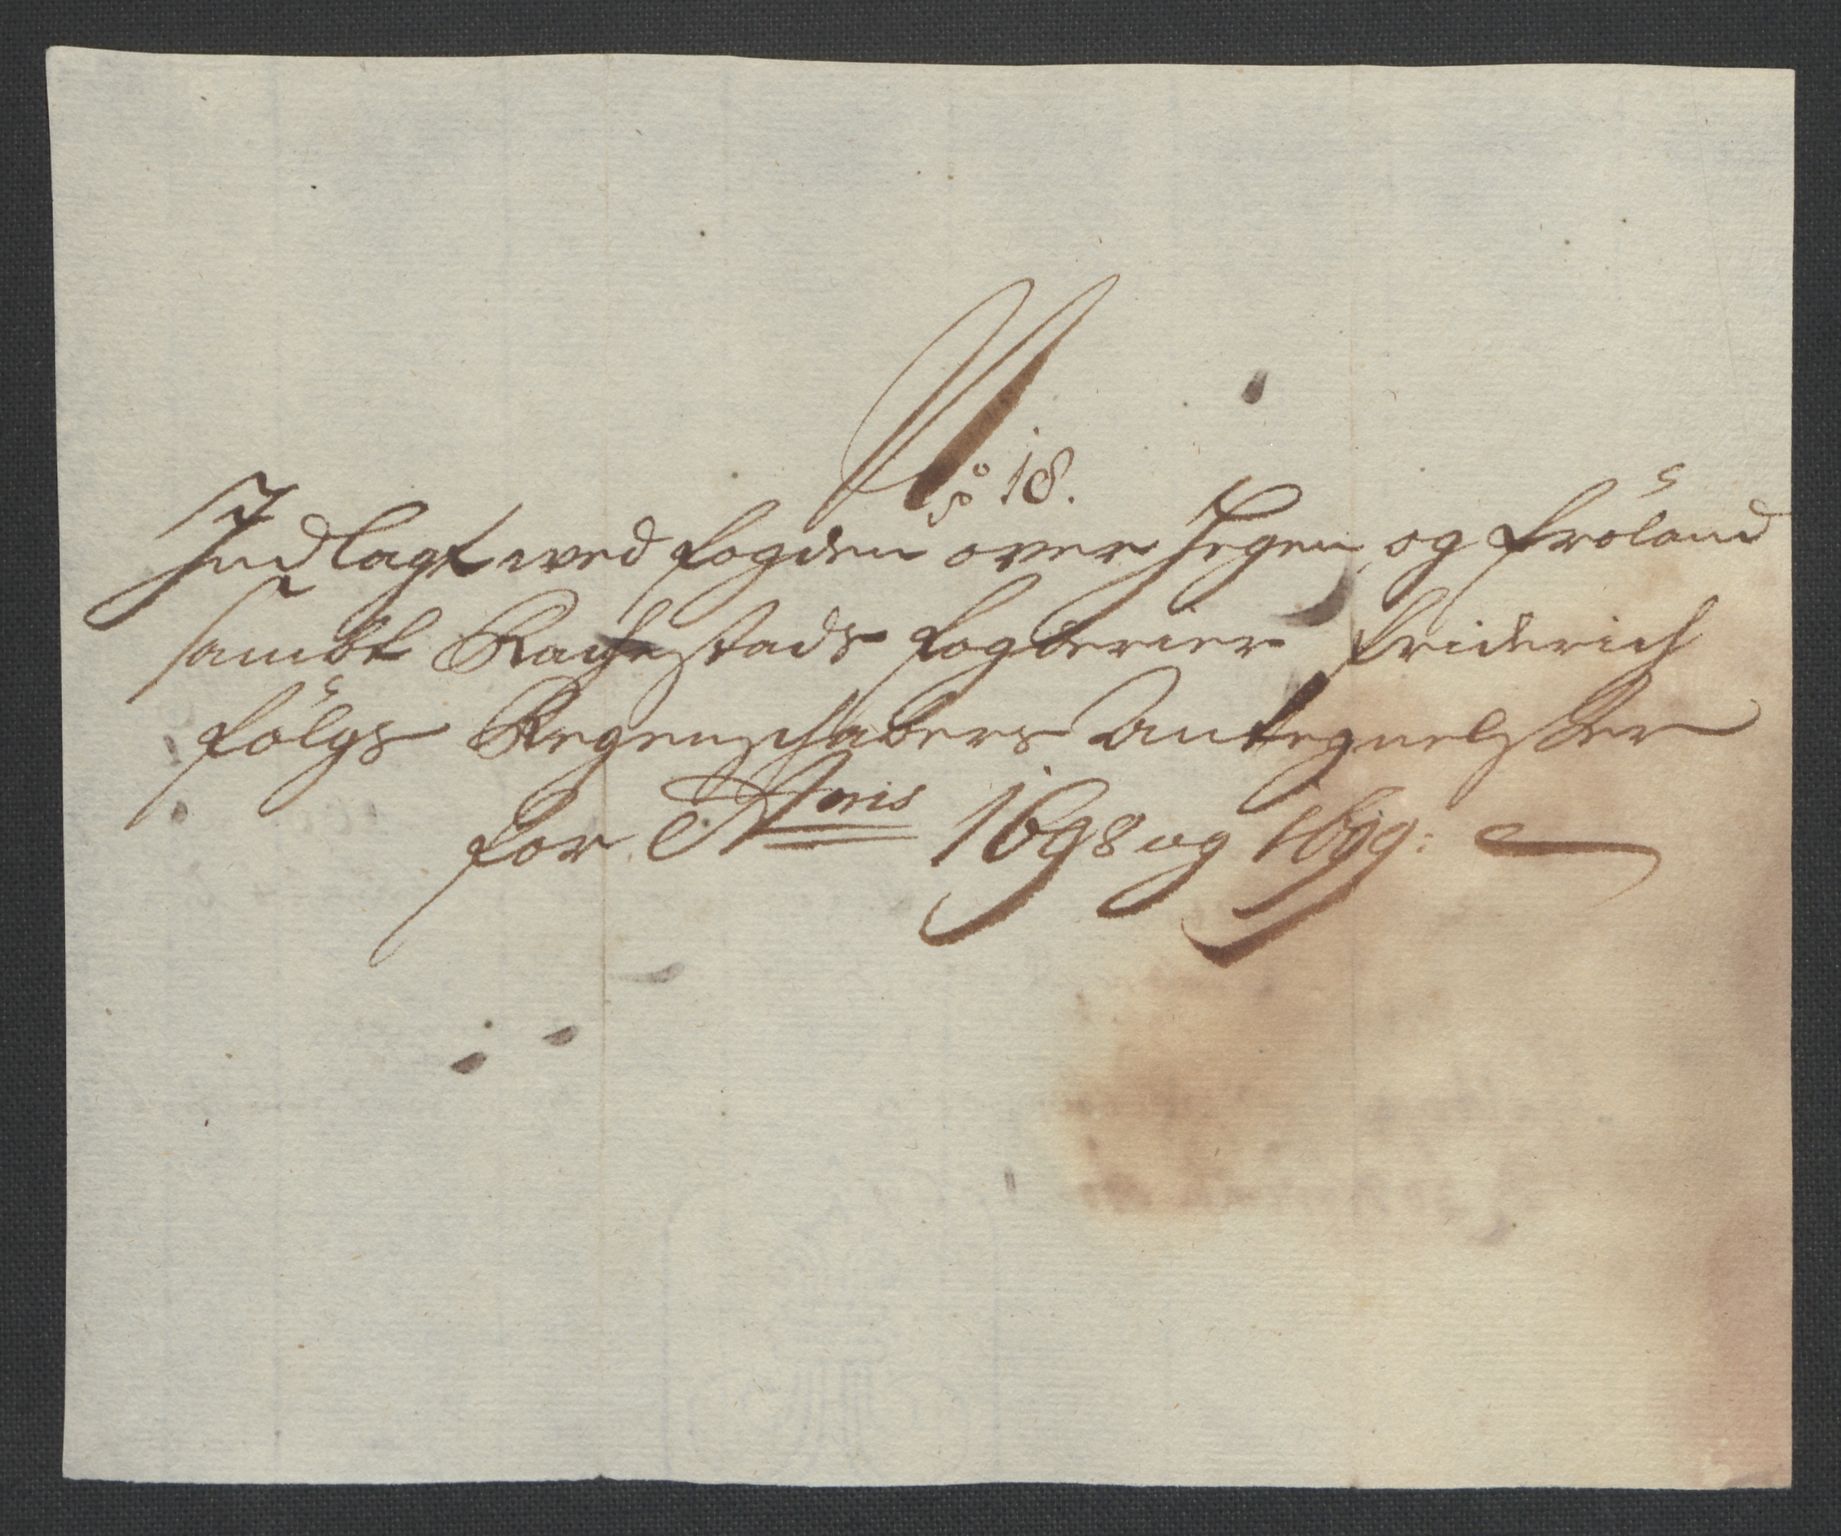 No 18.
Indlagt wed fogden over Hegen og frøland
sambt Rachestads fogterier friderich
følgs Regenschabers Antegnelser
for Aoris 1698 og 1699: